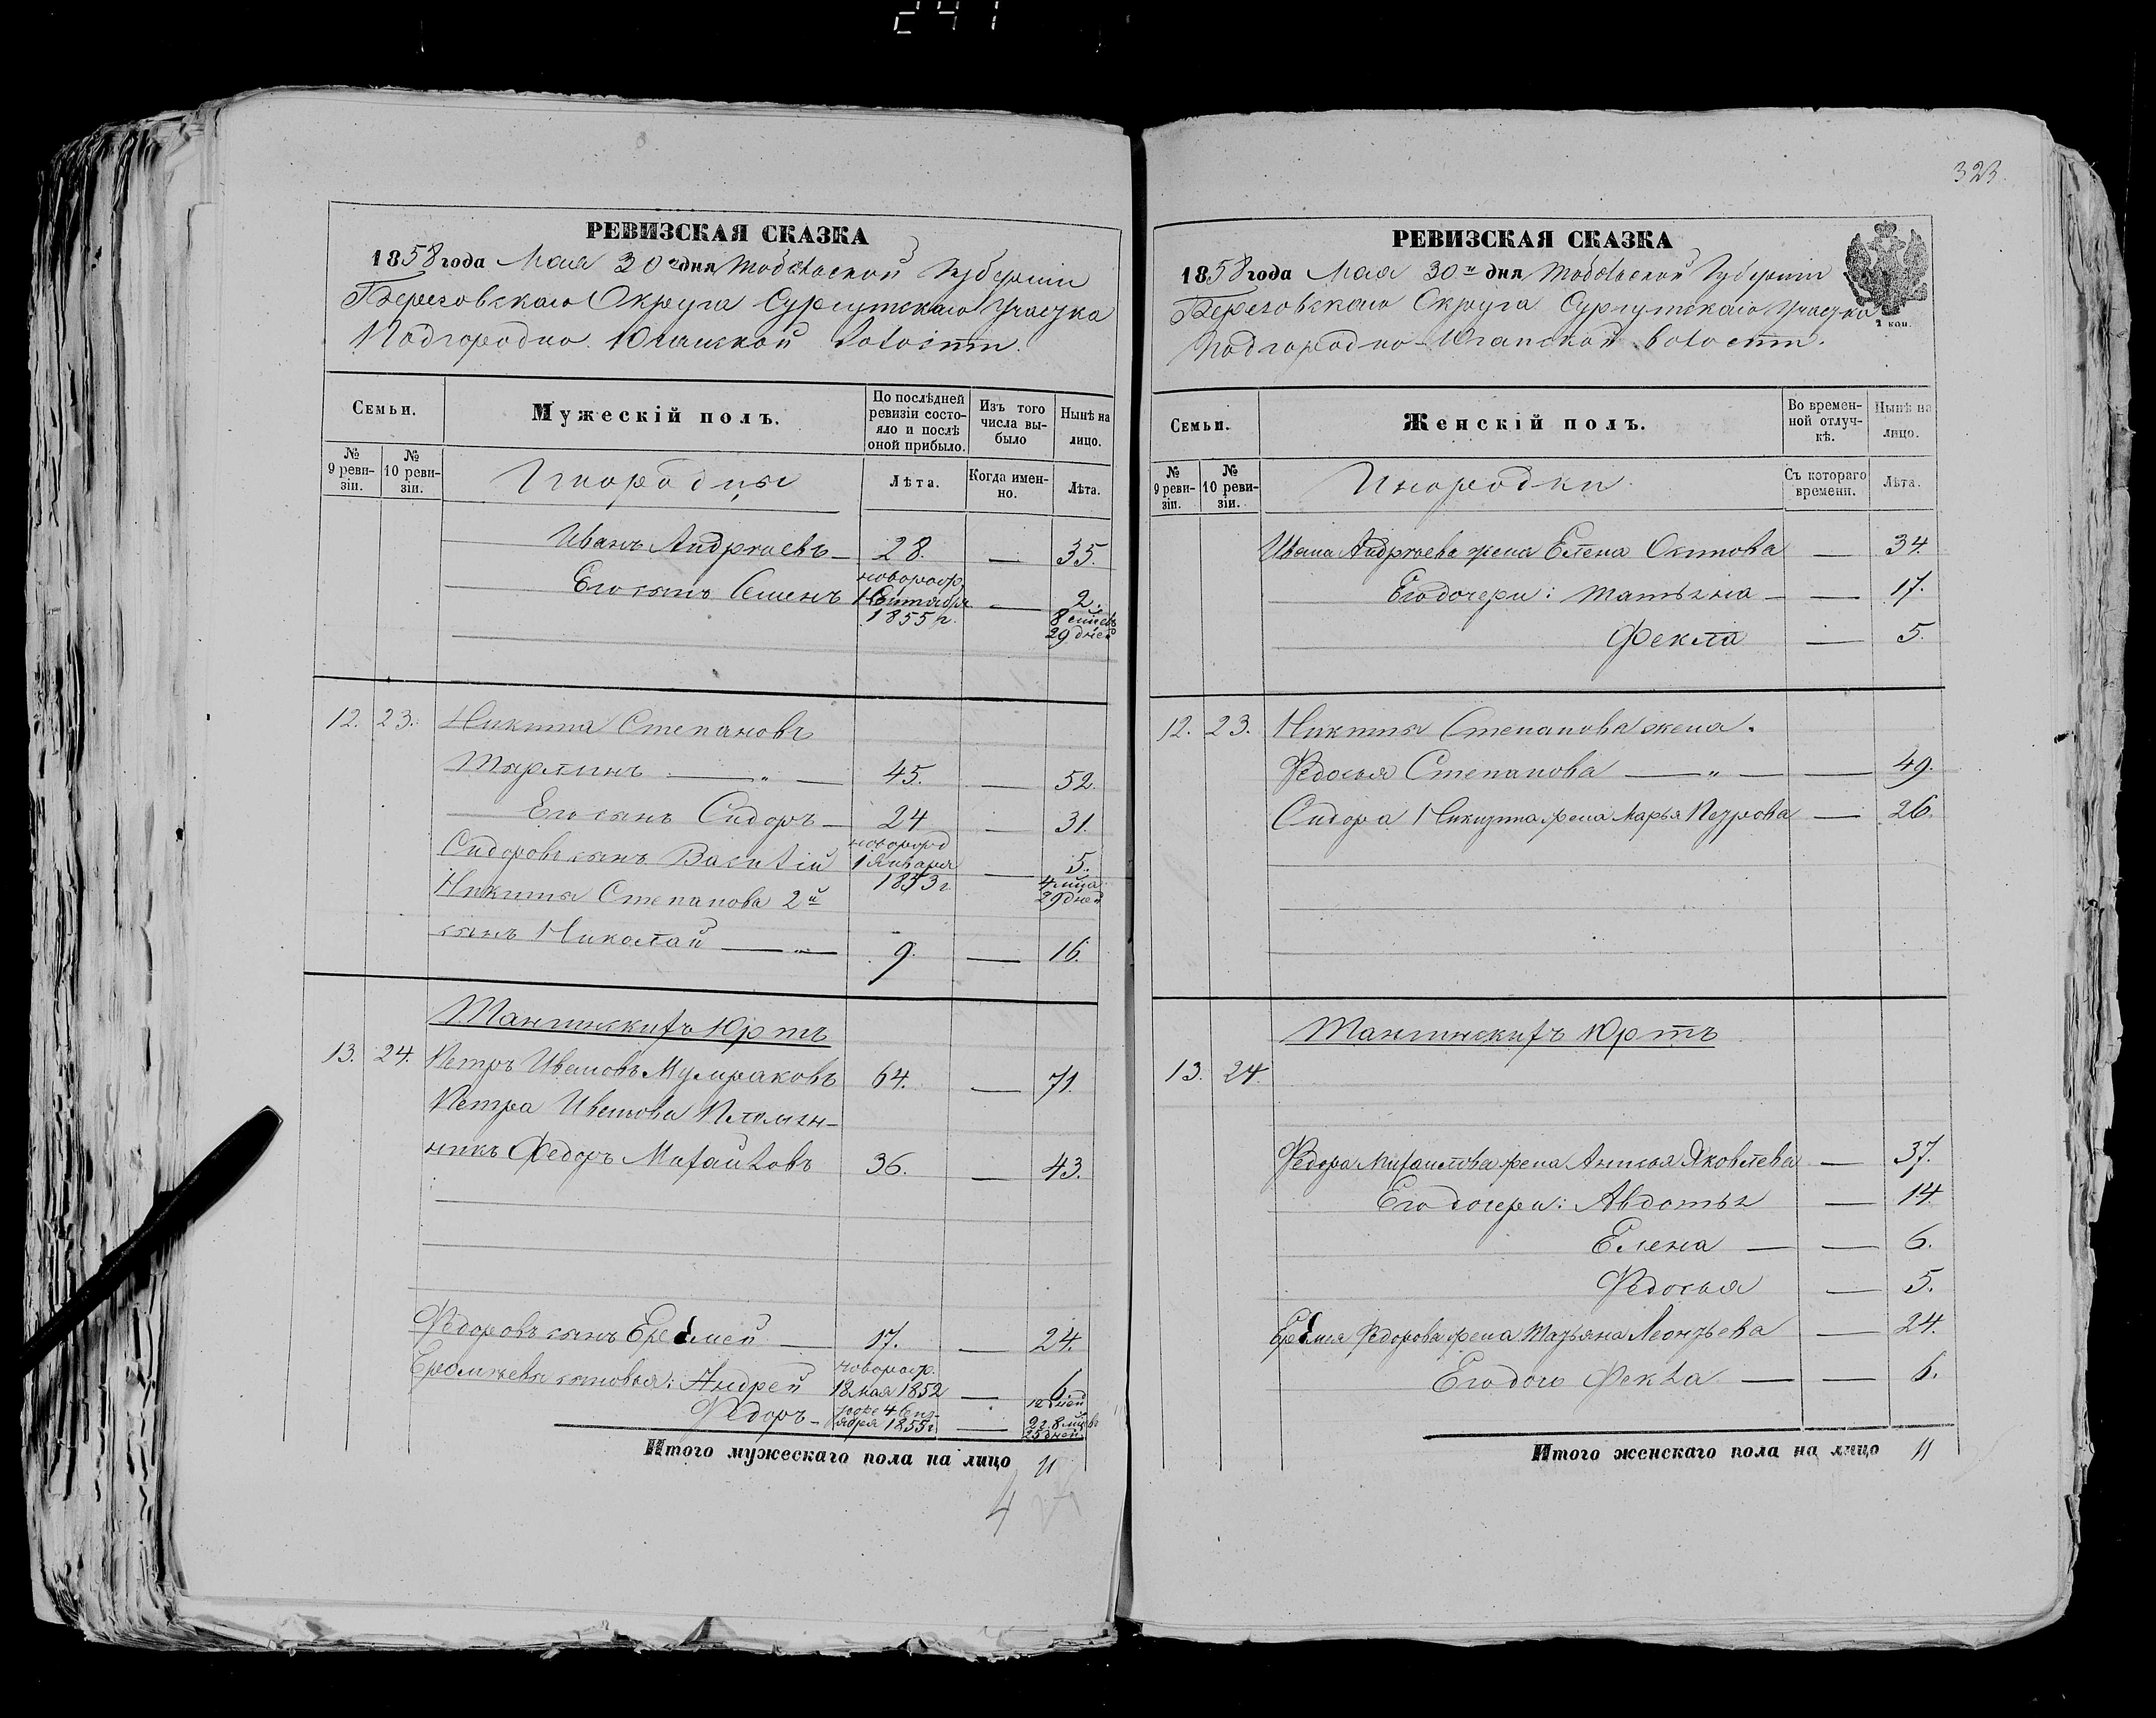 241
РЕВИЗСКАЯ СКАЗКА
1858 года Мая 30го дня Тобольской Губернии
Березовскаго Округа Сургутскаго Участка
Подгородно Юганской Волости.
Семьи.
Мужескій полъ.
До послѣдней ревизіи состояло и послѣ оной прибыло.
Изъ того числа выбыло
Нынѣ на лицо.
№ 9 ревизіи.
№ 10 ревизіи.
Инородцы
Лѣта.
Когда именно.
Лѣта.
Иванъ Андреевъ — 28. — 35.
Его сынъ Семенъ новорож. 1 Сентября 1855 г. — 2. 8 мцевъ 29 дней
12. 23. Никита Степановъ
Тырлинъ — „ — 45. — 52.
Его сынъ Сидоръ — 24 — 31.
Сидоровъ сынъ Василій новорожд 1 Января 1853 г — 5. 4 мца 29 дней
Никиты Степанова 2й
сынъ Николай — „ — 9. — 16.
Тангинскихъ Юртъ
13. 24. Петръ Ивановъ Мулраковъ 64. — 71.
Петра Иванова Племян-
никъ Федоръ Михайловъ 36. — 43.
Федоровъ сынъ Еремей — 17. — 24.
Еремѣевы сыновья: Андрей новорож. 18 мая 1852 — 6. 12 дней
Федоръ — тоже 4 Сентября 1855 г — 2 г. 8 мцевъ 25 дней
Итого мужескаго пола на лицо 11
4
323.
РЕВИЗСКАЯ СКАЗКА
1858 года Мая 30го дня Тобольской Губернии
Березовскаго Округа Сургутскаго Участка
Подгородно-Юганской волости.
2 коп.
Семьи.
Женскій полъ.
Во временной отлучкѣ.
Нынѣ на лицо.
№ 9 ревизіи.
№ 10 ревизіи.
Инородки.
Съ котораго времени.
Лѣта.
Ивана Андреева жена Елена Осипова — 34.
Его дочери: Татьяна — — 17.
Фекла — 5.
12. 23. Никиты Степанова жена.
Федосья Степанова — „ — — 49.
Сидора Никитина жена Марья Петрова — 26.
Тангинскихъ Юртъ
13. 24.
Федора Михайлова жена Анисья Яковлева — 37.
Его дочери: Авдотья — 14.
Елена — — 6.
Федосья — 5.
Еремея Федорова жена Татьяна Леонтьева — 24.
Его дочь Фекла — — 6.
Итого женскаго пола на лицо 11